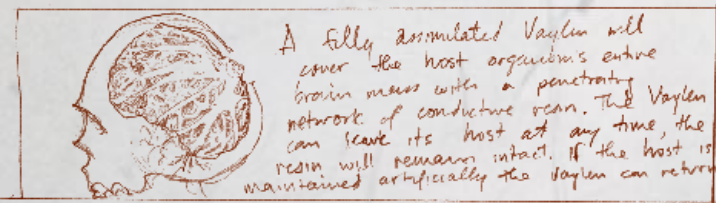 A fully assimilated Vaylen will
cover the host organism's entire
brain mass with a penetrating
network of conductive resin. The Vaylen
can leave its host at any time, the
resin will remain intact. If the host is
maintained artificially the Vaylen can return